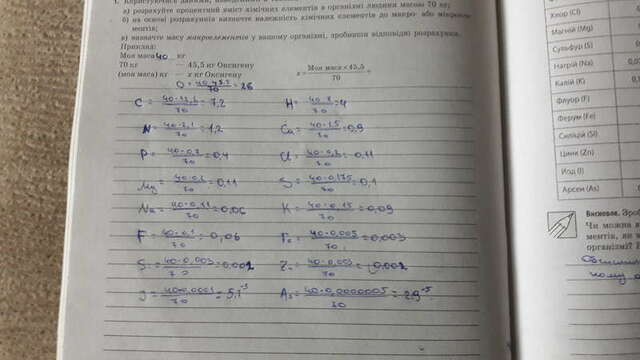 1. Користуючись даними, наведеними в
а) розрахуйте процентний вміст хімічних елементів в організмі людини масою 70 кг;
б) на основі розрахунків визначте належність хімічних елементів до макро- або мікроеле-
ментів;
в) визначте масу макроелементів у вашому організмі, зробивши відповідні розрахунки.
Приклад:
Моя маса 40 кг
70 кг — 45,5 кг Оксигену
(моя маса) кг — x кг Оксигену
x = Моя маса × 45,5 / 70 =
O = 40·45,5 / 70 = 26
C = / 70 = 7,2
H = 40·7 / 70 = 4
N = 40·2,1 / 70 = 1,2
Ca = 40·1,5 / 70 = 0,9
P = 40·0,7 / 70 = 0,4
Cl = 40·0,2 / 70 = 0,11
Mg = 40·0,2 / 70 = 0,11
S = 40·0,175 / 70 = 0,1
Na = / 70 = 0,06
K = 40·0,15 / 70 = 0,09
F = 40·0,1 / 70 = 0,06
Fe = 40·0,005 / 70 = 0,003
S = 40·0,003 / 70 = 0,002
Z = 40·0,003 / 70 = 0,002
J = 40·0,0001 / 70 =
As = 40·0,0000005 / 70 =
Хлор (Cl)
Магній (Mg)
Сульфур (S)
Натрій (Na)
Калій (K)
Флуор (F)
Ферум (Fe)
Силіцій (Si)
Цинк (Zn)
Йод (I)
Арсен (As)
Висновок.
Чи можна в
ментів, як
організмі?